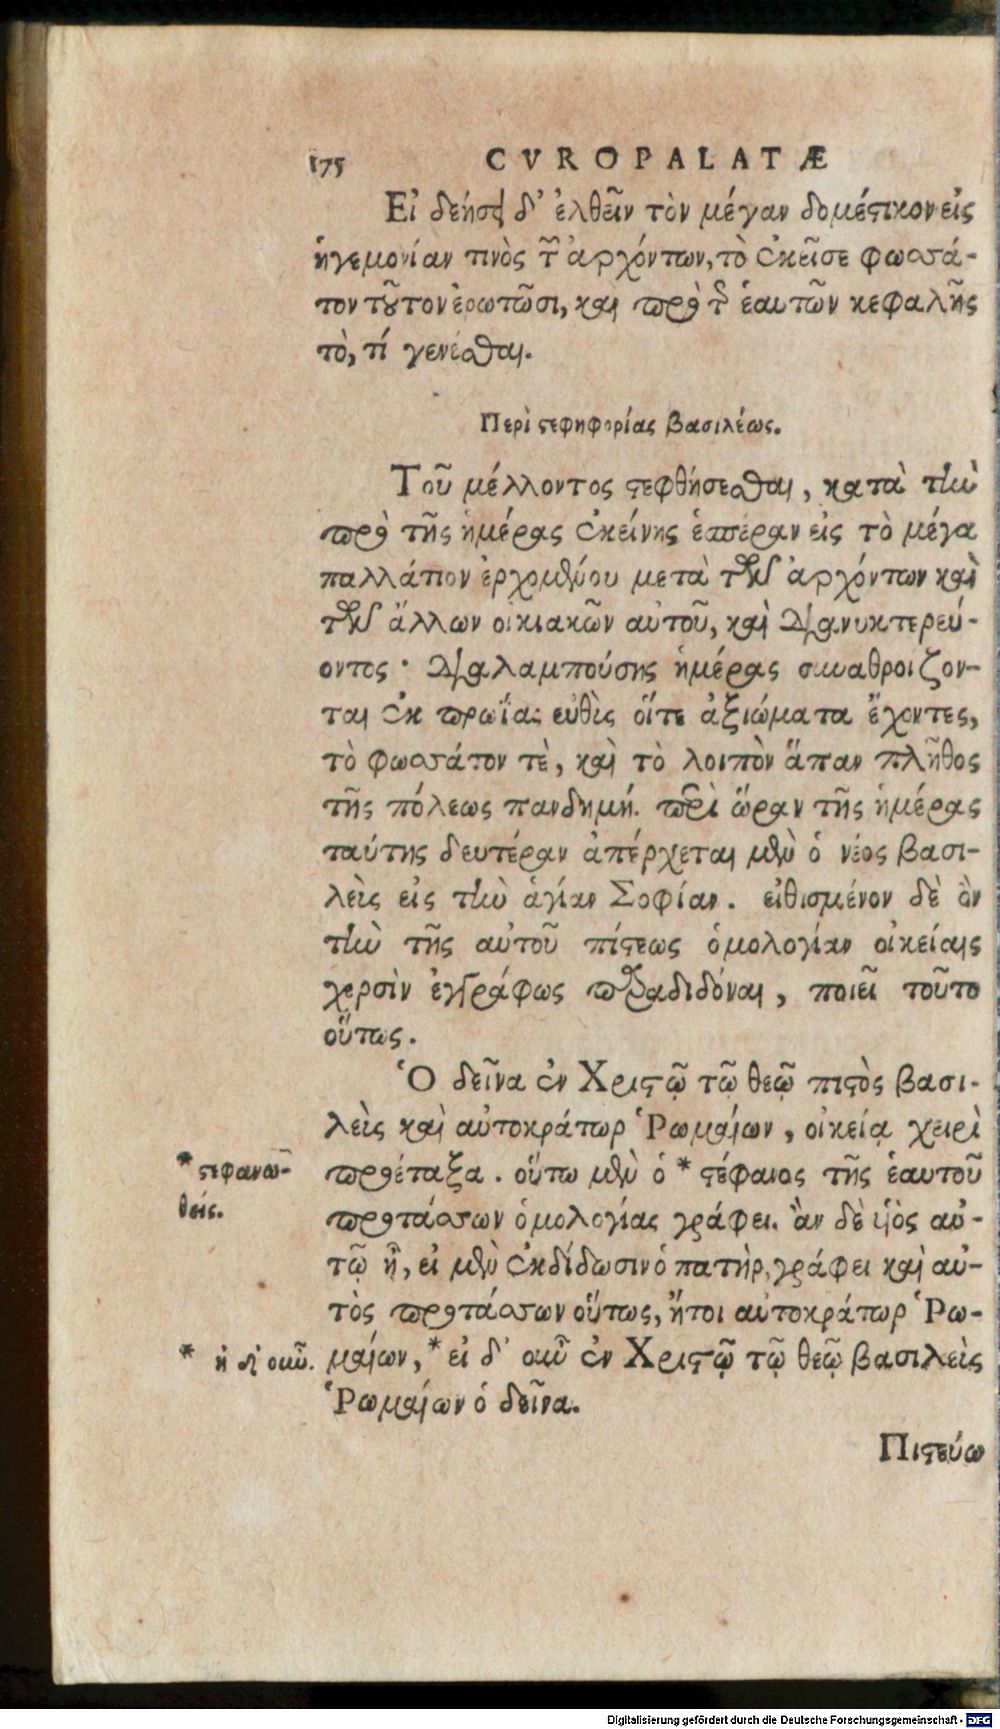 175 CVROPALATÆ
Εἰ δεήσει δ' ἐλθεῖν τὸν μέγαν δομέστικον εἰς
ἡγεμονίαν τινὸς τῶν ἀρχόντων, τὸ ἐκεῖσε φωσσά-
τον τοῦτον ἐρωτῶσι, καὶ πρὸ τῆς ἑαυτῶν κεφαλῆς
τὸ, τί γενέσθαι.
Περὶ στεφηφορίας βασιλέως.
Τοῦ μέλλοντος στεφθήσεσθαι, κατὰ τὴν
πρὸ τῆς ἡμέρας ἐκείνης ἑσπέραν εἰς τὸ μέγα
παλλάτιον ἐρχομένου μετὰ τῶν ἀρχόντων καὶ
τῶν ἄλλων οἰκιακῶν αὐτοῦ, καὶ διανυκτερεύ-
οντος· διαλαμπούσης ἡμέρας συναθροίζον-
ται ἐκ πρωΐας εὐθὶς οἵτε ἀξιώματα ἔχοντες,
τὸ φωσσάτον τὲ, καὶ τὸ λοιπὸν ἅπαν πλῆθος
τῆς πόλεως πανδημή. περὶ ὥραν τῆς ἡμέρας
ταύτης δευτέραν ἀπέρχεται μὲν ὁ νέος βασι-
λεὺς εἰς τὴν ἁγίαν Σοφίαν. εἰθισμένον δὲ ὂν
τὴν τῆς αὐτοῦ πίστεως ὁμολογίαν οἰκείαις
χερσὶν ἐγγράφως παραδιδόναι, ποιεῖ τοῦτο
οὕτως.
Ὁ δεῖνα ἐν Χριστῷ τῷ θεῷ πιστὸς βασι-
λεὺς καὶ αὐτοκράτωρ Ῥωμαίων, οἰκείᾳ χειρὶ
* στεφανω-
θείς.
προέταξα. οὕτω μὲν ὁ * στέφανος τῆς ἑαυτοῦ
προτάσσων ὁμολογίας γράφει. ἂν δὲ υἱὸς αὐ-
τῷ ᾖ, εἰ μὲν ἐκδίδωσιν ὁ πατὴρ, γράφει καὶ αὐ-
τὸς προτάσσων οὕτως, ἤτοι αὐτοκράτωρ Ῥω-
* ἢ δ' οὖν.
μαίων, * εἰ δ' οὖν ἐν Χριστῷ τῷ θεῷ βασιλεὺς
Ῥωμαίων ὁ δεῖνα.
Πιστεύω
Digitalisierung gefördert durch die Deutsche Forschungsgemeinschaft - DFG